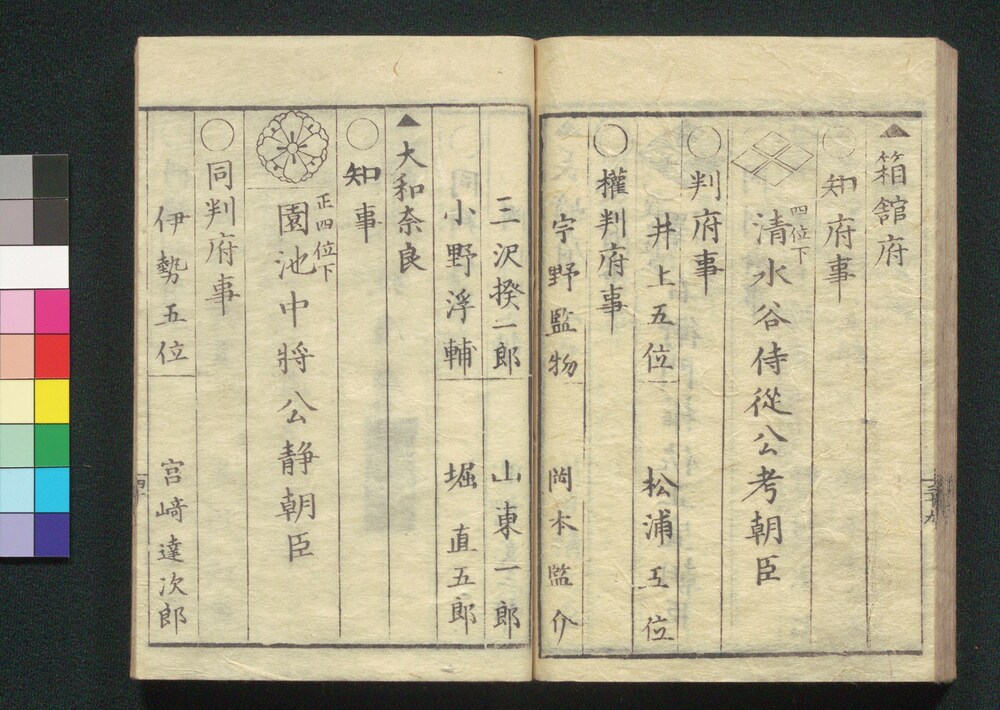 ▲箱舘府
○知府事
四位下
清水谷侍從公考朝臣
○判府事
井上五位
松浦五位
○權判府事
宇野監物
岡本監介
三沢揆一郎
山東一郎
小野浮輔
堀直五郎
▲大和奈良
○知事
正四位下
園池中將公静朝臣
○同判府事
伊勢五位
宮﨑達次郎